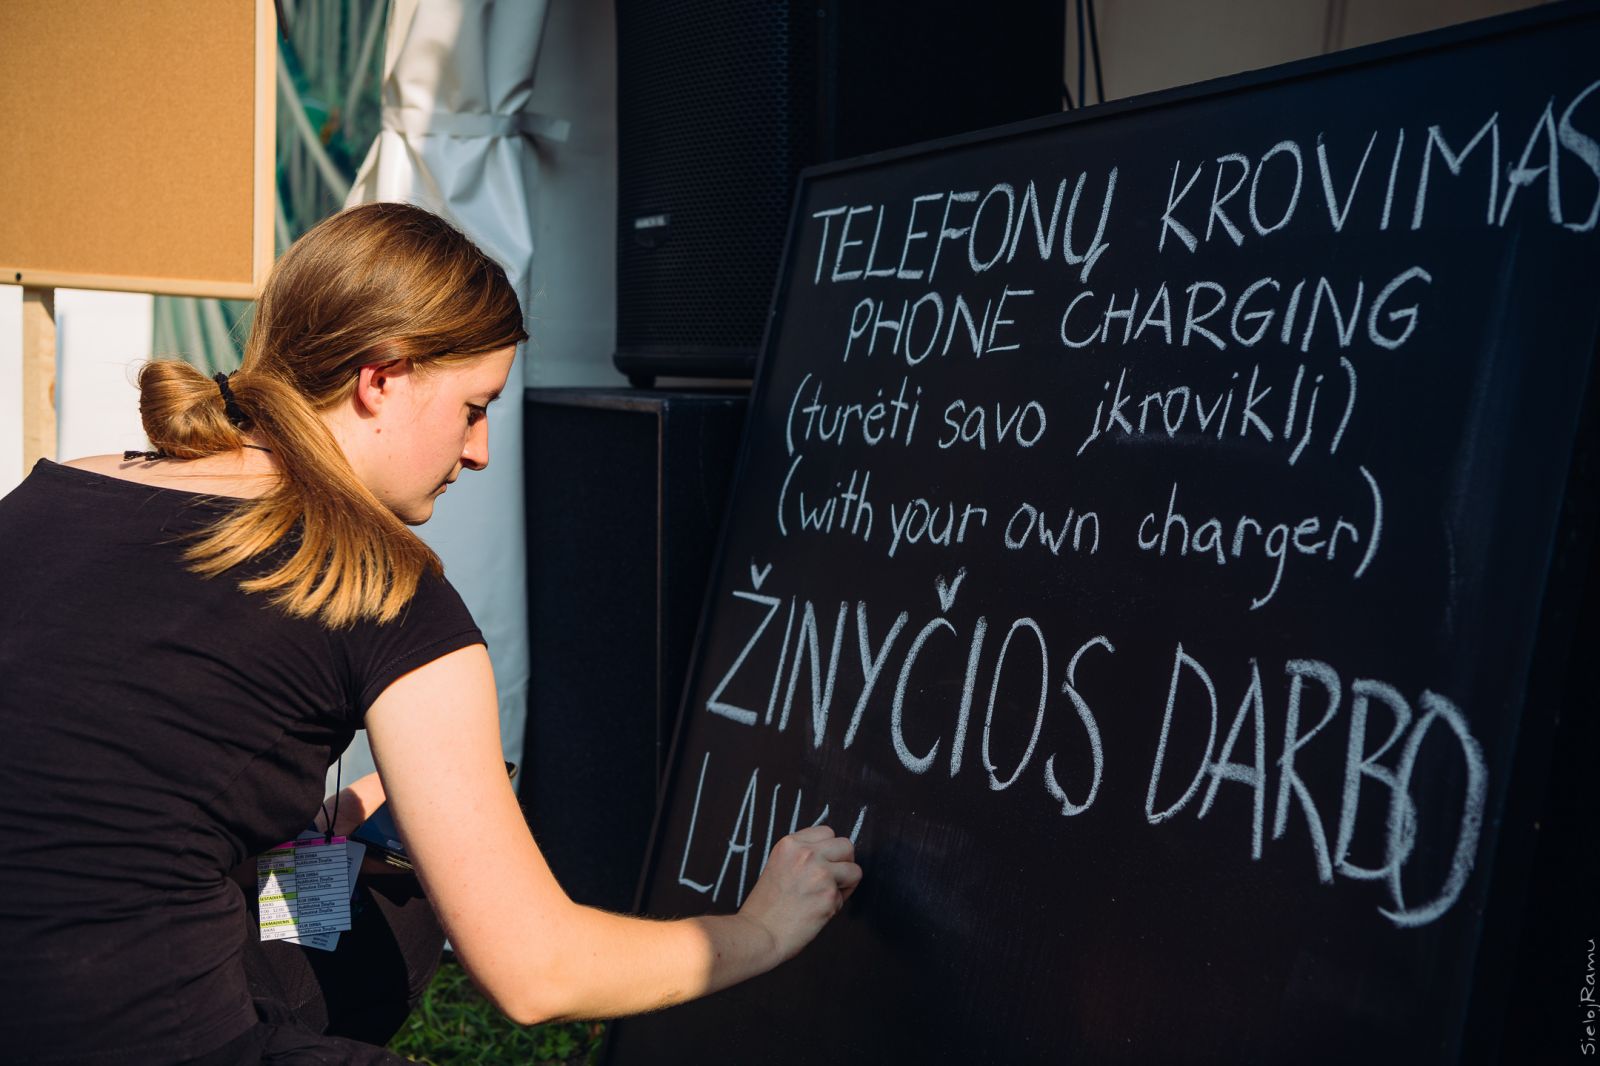 TELEFONŲ KROVIMAS
PHONE CHARGING
(turėti savo įkroviklį)
(with your own charger)
ŽINYČIOS DARBO
LAIK
SielojRamu